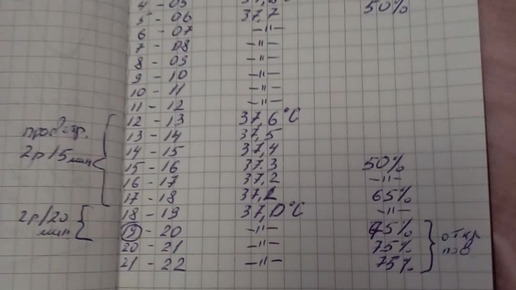 4 - 05 37,8 50%
5 - 06 37,7
6 - 07 -"-
7 - 08 -"-
8 - 09 -"-
9 - 10 -"-
10 - 11 -"-
11 - 12 -"-
12 - 13 37,6°C
проветр. 13 - 14 37,5
2р 15 мин 14 - 15 37,4
15 - 16 37,3 50%
16 - 17 37,2 -"-
17 - 18 37,1 65%
2р/20 мин 18 - 19 37,0°C -"-
19 - 20 -"- 75% откр
20 - 21 -"- 75%
21 - 22 -"- 75%